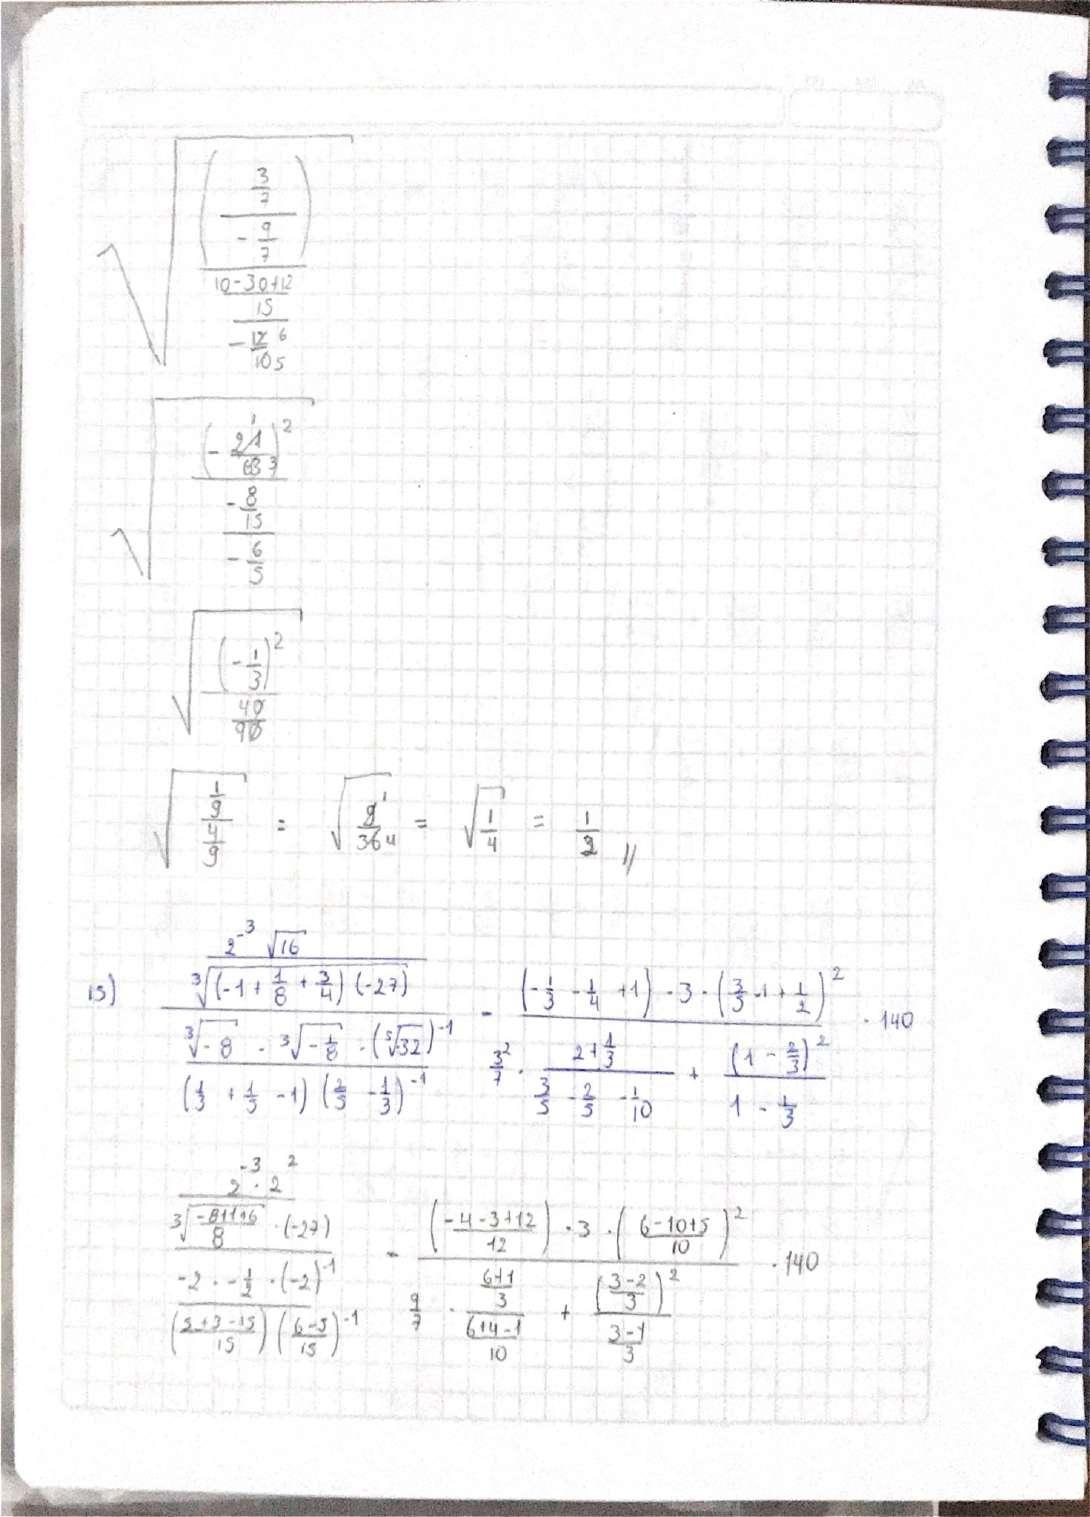 √( ( (3/7) / (-9/7) ) / ( ( (10-30+12)/15 ) / ( -12/10 6/5 ) ) )
√( ( -21/63 1/3 )² / ( ( -8/15 ) / ( -6/5 ) ) )
√( ( -1/3 )² / ( 40/90 ) )
√( (1/9) / (4/9) ) = √( 9/36 1/4 ) = √( 1/4 ) = 1/2 //
15) ( ( 2⁻³ √16 / ∛( (-1 + 1/8 + 3/4) (-27) ) ) / ( ( ∛-8 · ∛(-1/8) · (⁵√-32)⁻¹ ) / ( (1/3 + 1/5 - 1) (2/5 - 1/3)⁻¹ ) ) ) - ( ( (-1/3 - 1/4 + 1) · 3 · (3/5 - 1 + 1/2)² ) / ( 3²/7 · (2 + 1/3) / (3/5 - 2/5 - 1/10) + (1 - 2/3)² / (1 - 1/3) ) ) · 140
( ( 2⁻³ · 2² / ∛( (-8+1+6)/8 · (-27) ) ) / ( ( -2 · -1/2 · (-2)⁻¹ ) / ( ((5+3-15)/15) ((6-5)/15)⁻¹ ) ) ) - ( ( ((-4-3+12)/12) · 3 · ((6-10+5)/10)² ) / ( 9/7 · ((6+1)/3) / ((6+4-1)/10) + ((3-2)/3)² / ((3-1)/3) ) ) · 140